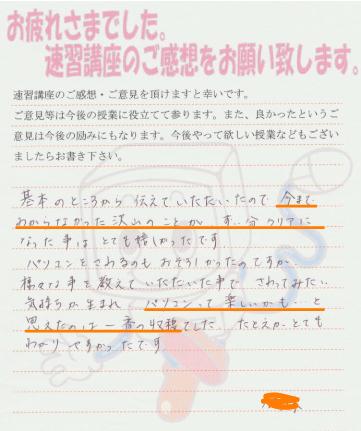 お疲れさまでした。
速習講座のご感想をお願い致します。
速習講座のご感想・ご意見を頂けますと幸いです。
ご意見等は今後の授業に役立てて参ります。また、良かったというご
意見は今後の励みにもなります。今後やって欲しい授業などもござい
ましたらお書き下さい。
基本のところから 伝えていただいたので 今まで
わからなかった沢山のことが ず分クリアに
なった事は とても嬉しかったです
パソコンをさわるのも おそろしかったのですが、
様々な事を教えていただいた事で さわってみたい
気持ちが生まれ パソコンって楽しいかも… と
思えたのは 一番の収穫でした たとえが とても
わかりやすかったです